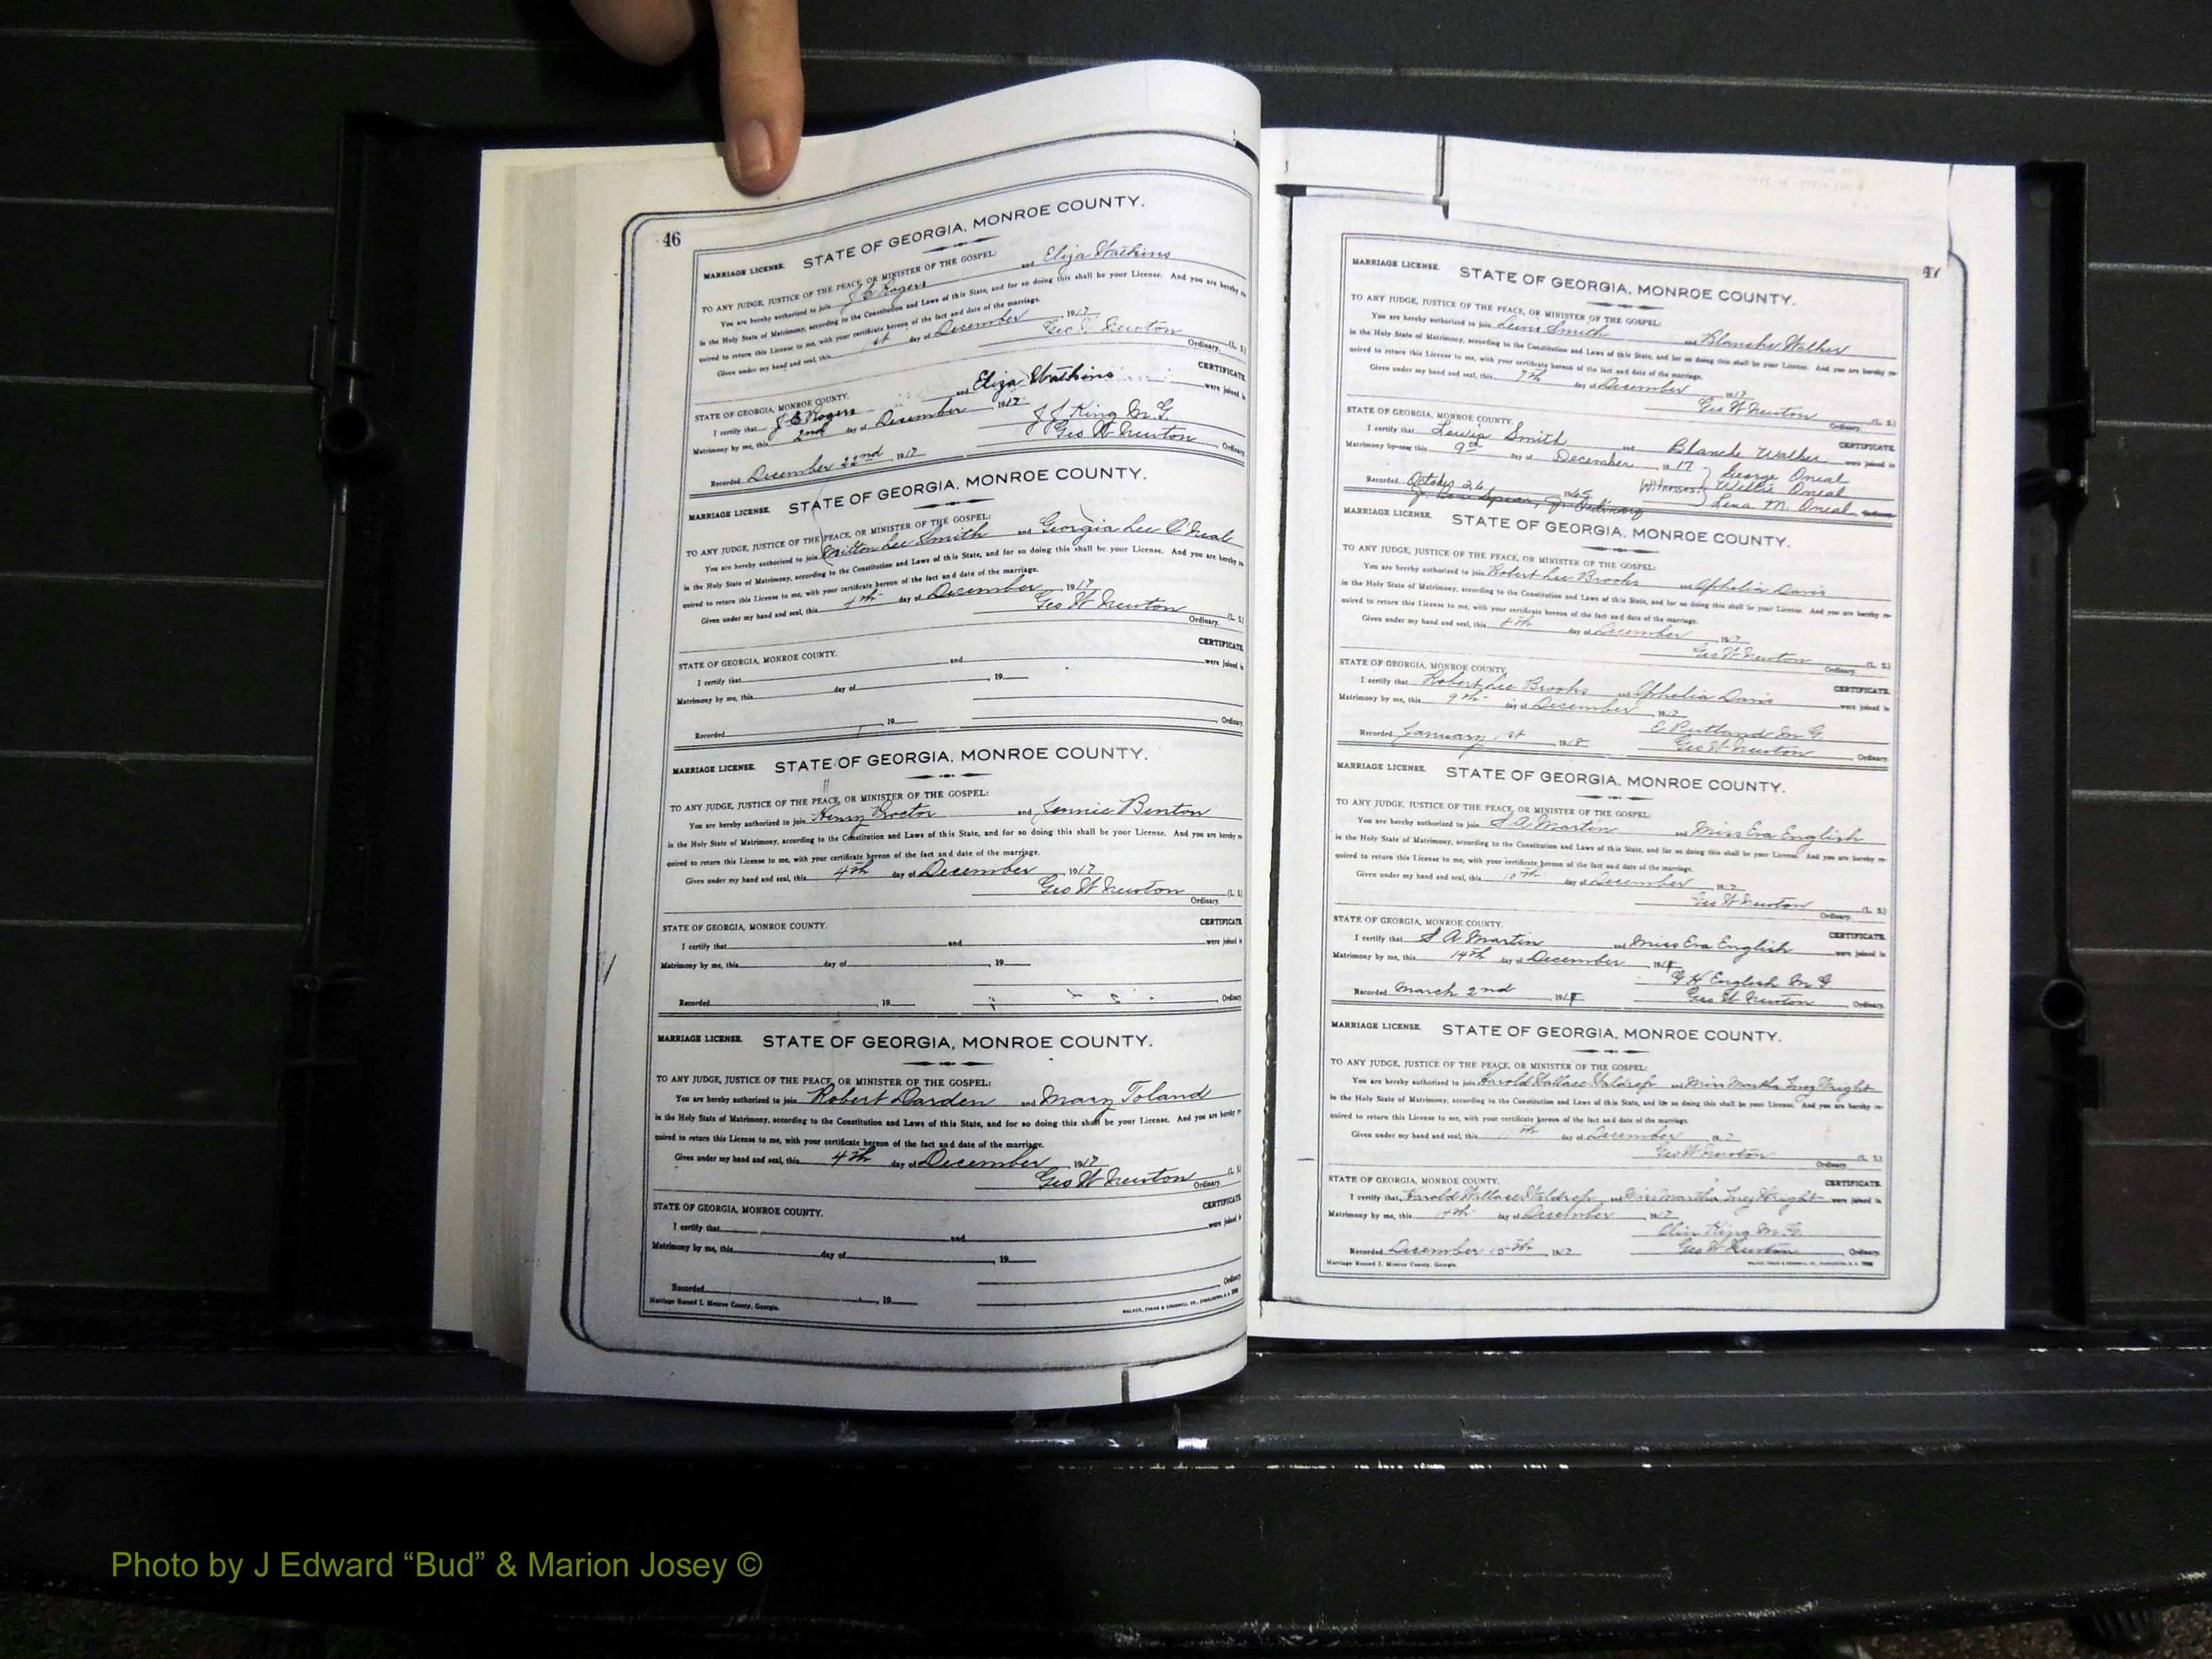 46
MARRIAGE LICENSE. STATE OF GEORGIA, MONROE COUNTY.
TO ANY JUDGE, JUSTICE OF THE PEACE, OR MINISTER OF THE GOSPEL:
You are hereby authorized to join J E Rogers and Eliza Watkins
in the Holy State of Matrimony, according to the Constitution and Laws of this State, and for so doing this shall be your License. And you are hereby re-
quired to return this License to me, with your certificate hereon of the fact and date of the marriage.
Given under my hand and seal, this 1st day of December 1917
Geo W Newton (L. S.)
Ordinary.
STATE OF GEORGIA, MONROE COUNTY. CERTIFICATE.
I certify that J E Rogers and Eliza Watkins were joined in
Matrimony by me, this 2nd day of December 1917
J J King M.G.
Recorded December 22nd 1917 Geo W Newton Ordinary.
MARRIAGE LICENSE. STATE OF GEORGIA, MONROE COUNTY.
TO ANY JUDGE, JUSTICE OF THE PEACE, OR MINISTER OF THE GOSPEL:
You are hereby authorized to join Milton Lee Smith and Georgia Lee O'Neal
in the Holy State of Matrimony, according to the Constitution and Laws of this State, and for so doing this shall be your License. And you are hereby re-
quired to return this License to me, with your certificate hereon of the fact and date of the marriage.
Given under my hand and seal, this day of December 1917
Geo W Newton (L. S.)
Ordinary.
STATE OF GEORGIA, MONROE COUNTY. CERTIFICATE.
I certify that and were joined in
Matrimony by me, this day of , 19
Recorded , 19 Ordinary.
MARRIAGE LICENSE. STATE OF GEORGIA, MONROE COUNTY.
TO ANY JUDGE, JUSTICE OF THE PEACE, OR MINISTER OF THE GOSPEL:
You are hereby authorized to join Henry Proctor and Jennie Benton
in the Holy State of Matrimony, according to the Constitution and Laws of this State, and for so doing this shall be your License. And you are hereby re-
quired to return this License to me, with your certificate hereon of the fact and date of the marriage.
Given under my hand and seal, this 4th day of December, 1917
Geo W Newton (L. S.)
Ordinary.
STATE OF GEORGIA, MONROE COUNTY. CERTIFICATE.
I certify that and were joined in
Matrimony by me, this day of , 19
Recorded , 19 Ordinary.
MARRIAGE LICENSE. STATE OF GEORGIA, MONROE COUNTY.
TO ANY JUDGE, JUSTICE OF THE PEACE, OR MINISTER OF THE GOSPEL:
You are hereby authorized to join Robert Darden and Mary Toland
in the Holy State of Matrimony, according to the Constitution and Laws of this State, and for so doing this shall be your License. And you are hereby re-
quired to return this License to me, with your certificate hereon of the fact and date of the marriage.
Given under my hand and seal, this 4th day of December, 1917
Geo W Newton (L. S.)
Ordinary.
STATE OF GEORGIA, MONROE COUNTY. CERTIFICATE.
I certify that and were joined in
Matrimony by me, this day of , 19
Recorded , 19 Ordinary.
Marriage Record I. Monroe County, Georgia.
47
MARRIAGE LICENSE. STATE OF GEORGIA, MONROE COUNTY.
TO ANY JUDGE, JUSTICE OF THE PEACE, OR MINISTER OF THE GOSPEL:
You are hereby authorized to join Lewis Smith and Blanche Walker
in the Holy State of Matrimony, according to the Constitution and Laws of this State, and for so doing this shall be your License. And you are hereby re-
quired to return this License to me, with your certificate hereon of the fact and date of the marriage.
Given under my hand and seal, this 7th day of December 1917
Geo W Newton (L. S.)
Ordinary.
STATE OF GEORGIA, MONROE COUNTY. CERTIFICATE.
I certify that Lewis Smith and Blanche Walker were joined in
Matrimony by me, this 9th day of December 1917
Witnesses: George Oneal
Willie Oneal
Lena M. Oneal
Recorded October 26 1965
Ordinary
MARRIAGE LICENSE. STATE OF GEORGIA, MONROE COUNTY.
TO ANY JUDGE, JUSTICE OF THE PEACE, OR MINISTER OF THE GOSPEL:
You are hereby authorized to join Robert Lee Brooks and Ophelia Davis
in the Holy State of Matrimony, according to the Constitution and Laws of this State, and for so doing this shall be your License. And you are hereby re-
quired to return this License to me, with your certificate hereon of the fact and date of the marriage.
Given under my hand and seal, this 8th day of December 1917
Geo W Newton (L. S.)
Ordinary.
STATE OF GEORGIA, MONROE COUNTY. CERTIFICATE.
I certify that Robert Lee Brooks and Ophelia Davis were joined in
Matrimony by me, this 9th day of December, 1917
E Rutland M G
Recorded January 1st, 1918 Geo W Newton Ordinary.
MARRIAGE LICENSE. STATE OF GEORGIA, MONROE COUNTY.
TO ANY JUDGE, JUSTICE OF THE PEACE, OR MINISTER OF THE GOSPEL:
You are hereby authorized to join S A Martin and Miss Eva English
in the Holy State of Matrimony, according to the Constitution and Laws of this State, and for so doing this shall be your License. And you are hereby re-
quired to return this License to me, with your certificate hereon of the fact and date of the marriage.
Given under my hand and seal, this 10th day of December, 1917
Geo W Newton (L. S.)
Ordinary.
STATE OF GEORGIA, MONROE COUNTY. CERTIFICATE.
I certify that S A Martin and Miss Eva English were joined in
Matrimony by me, this 14th day of December
G H English M G
Recorded March 2nd Geo W Newton Ordinary.
MARRIAGE LICENSE. STATE OF GEORGIA, MONROE COUNTY.
TO ANY JUDGE, JUSTICE OF THE PEACE, OR MINISTER OF THE GOSPEL:
You are hereby authorized to join Harold Wallace Waldrop and Miss Martha Wright
in the Holy State of Matrimony, according to the Constitution and Laws of this State, and for so doing this shall be your License. And you are hereby re-
quired to return this License to me, with your certificate hereon of the fact and date of the marriage.
Given under my hand and seal, this day of December 1917
Geo W Newton (L. S.)
Ordinary.
STATE OF GEORGIA, MONROE COUNTY. CERTIFICATE.
I certify that Harold Wallace Waldrop and Miss Martha Wright were joined in
Matrimony by me, this day of December, 1917
Olin King M.G.
Recorded December 15th, 1917 Geo W Newton Ordinary.
Marriage Record I. Monroe County, Georgia.
Photo by J Edward “Bud” & Marion Josey ©